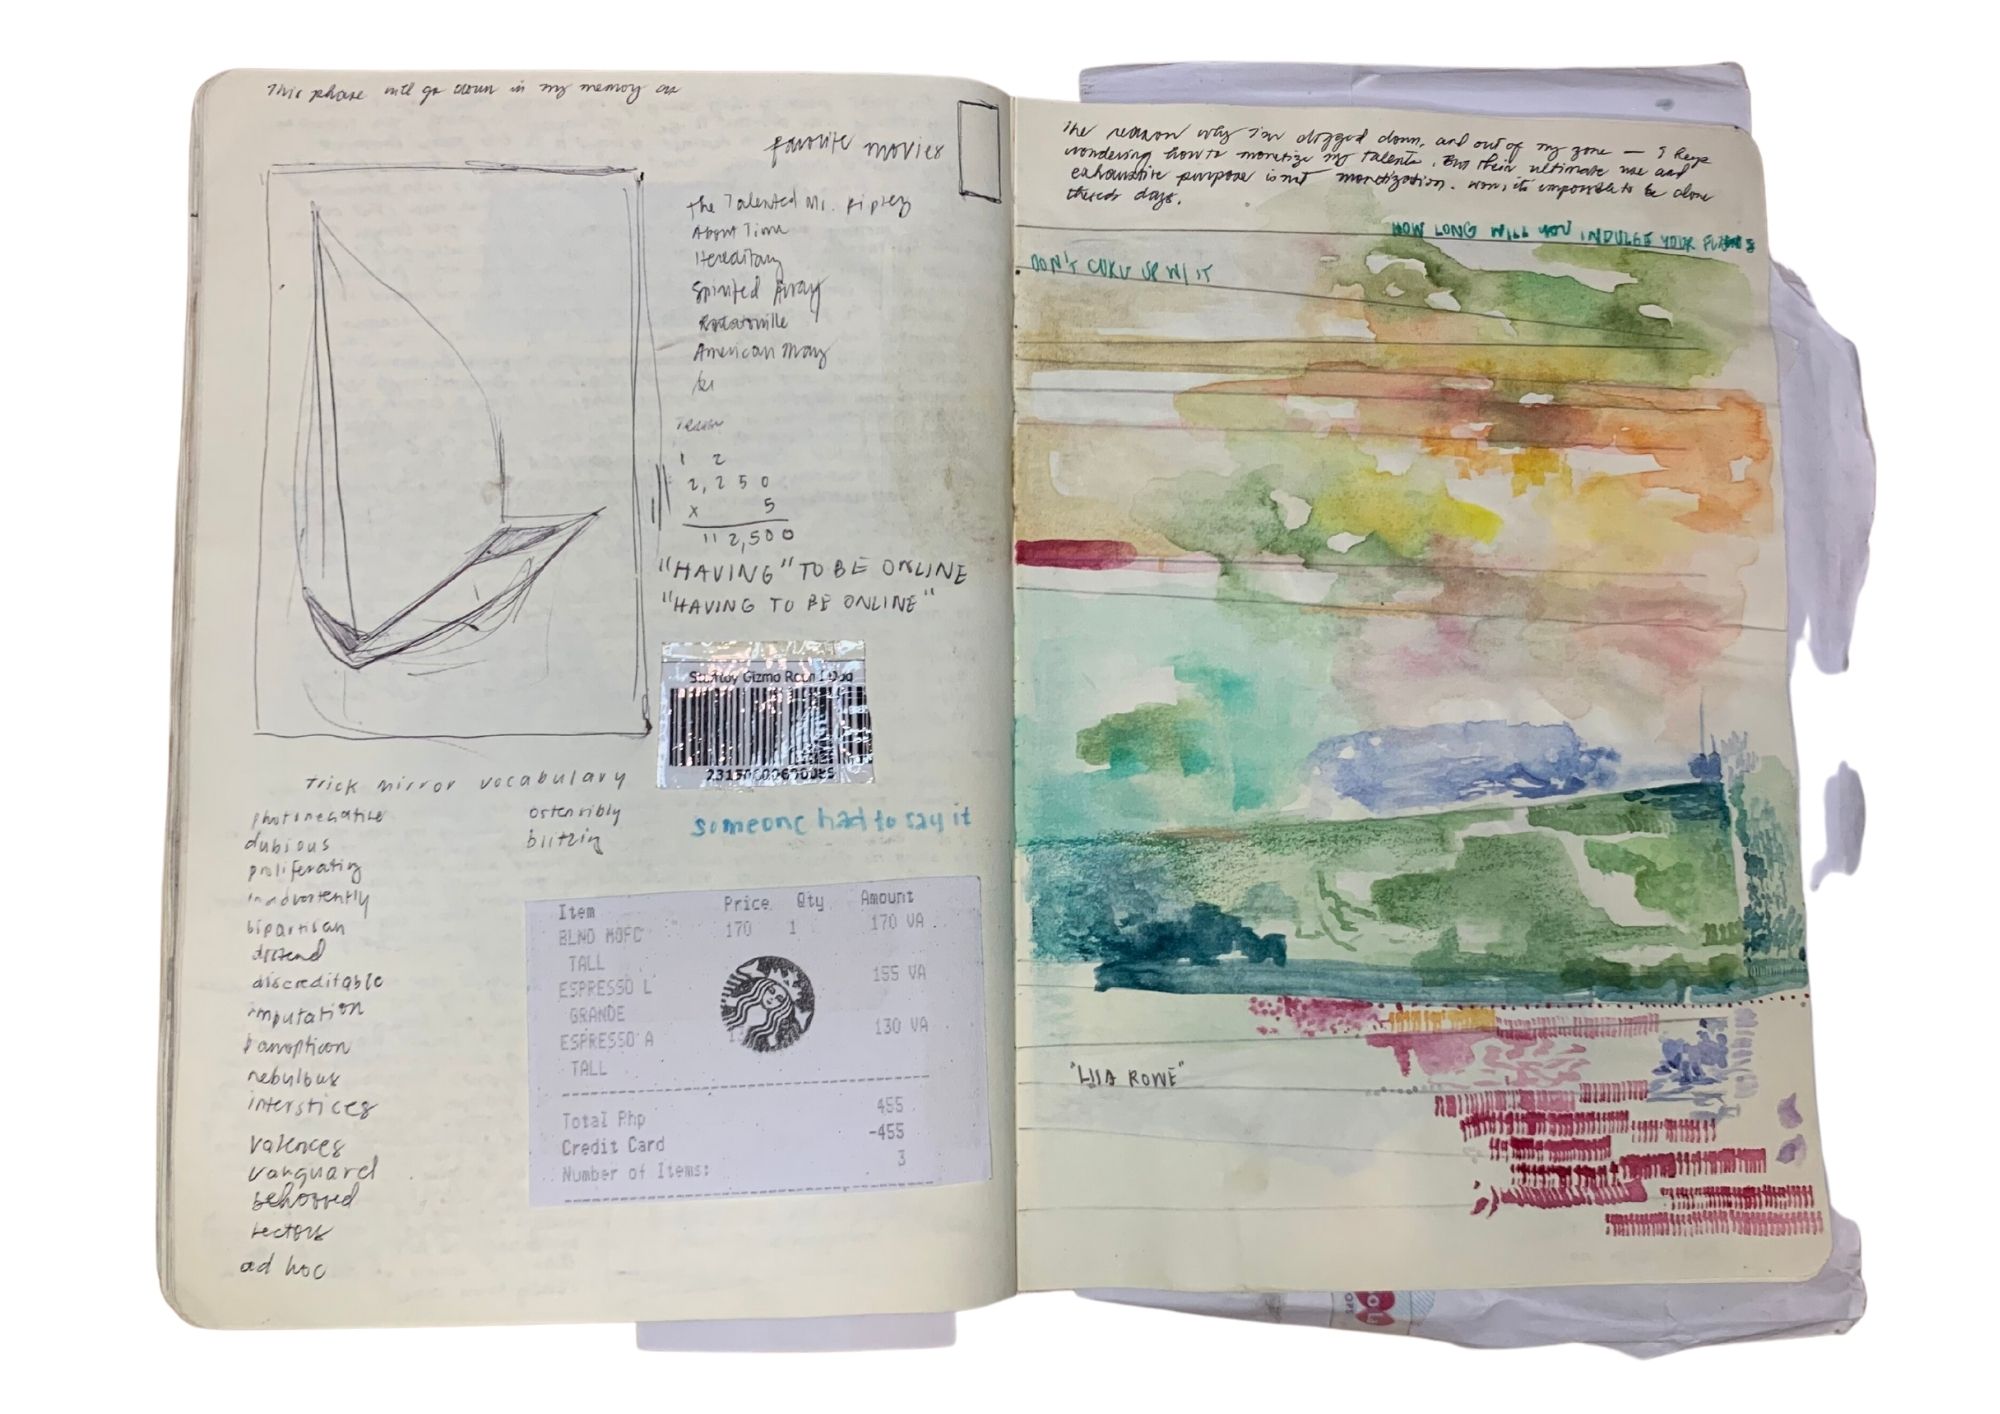 This phase will go down in my memory as
favorite movies
The Talented Mr. Ripley
About Time
Hereditary
Spirited Away
Ratatouille
American
1 2
2,250
x 5
112,500
"HAVING" TO BE ONLINE
"HAVING TO BE ONLINE"
Gizmo
someone had to say it
Trick mirror vocabulary
photonegative
dubious
proliferating
inadvertently
bipartisan
discreditable
imputation
panopticon
nebulous
interstices
valences
vanguard
behooved
vectors
ad hoc
ostensibly
Item Price Qty Amount
BLND MOFC 170 1 170 VA
TALL
ESPRESSO L 155 VA
GRANDE
ESPRESSO A 130 VA
TALL
Total Php 455
Credit Card -455
Number of Items: 3
The reason why I'm dogged down, and out of my zone — I keep
wondering how to monetize my talents. But their ultimate use and
exhaustive purpose is not monetization. impossible to be alone
these days.
HOW LONG WILL YOU INDULGE YOUR
DON'T UP W/ IT